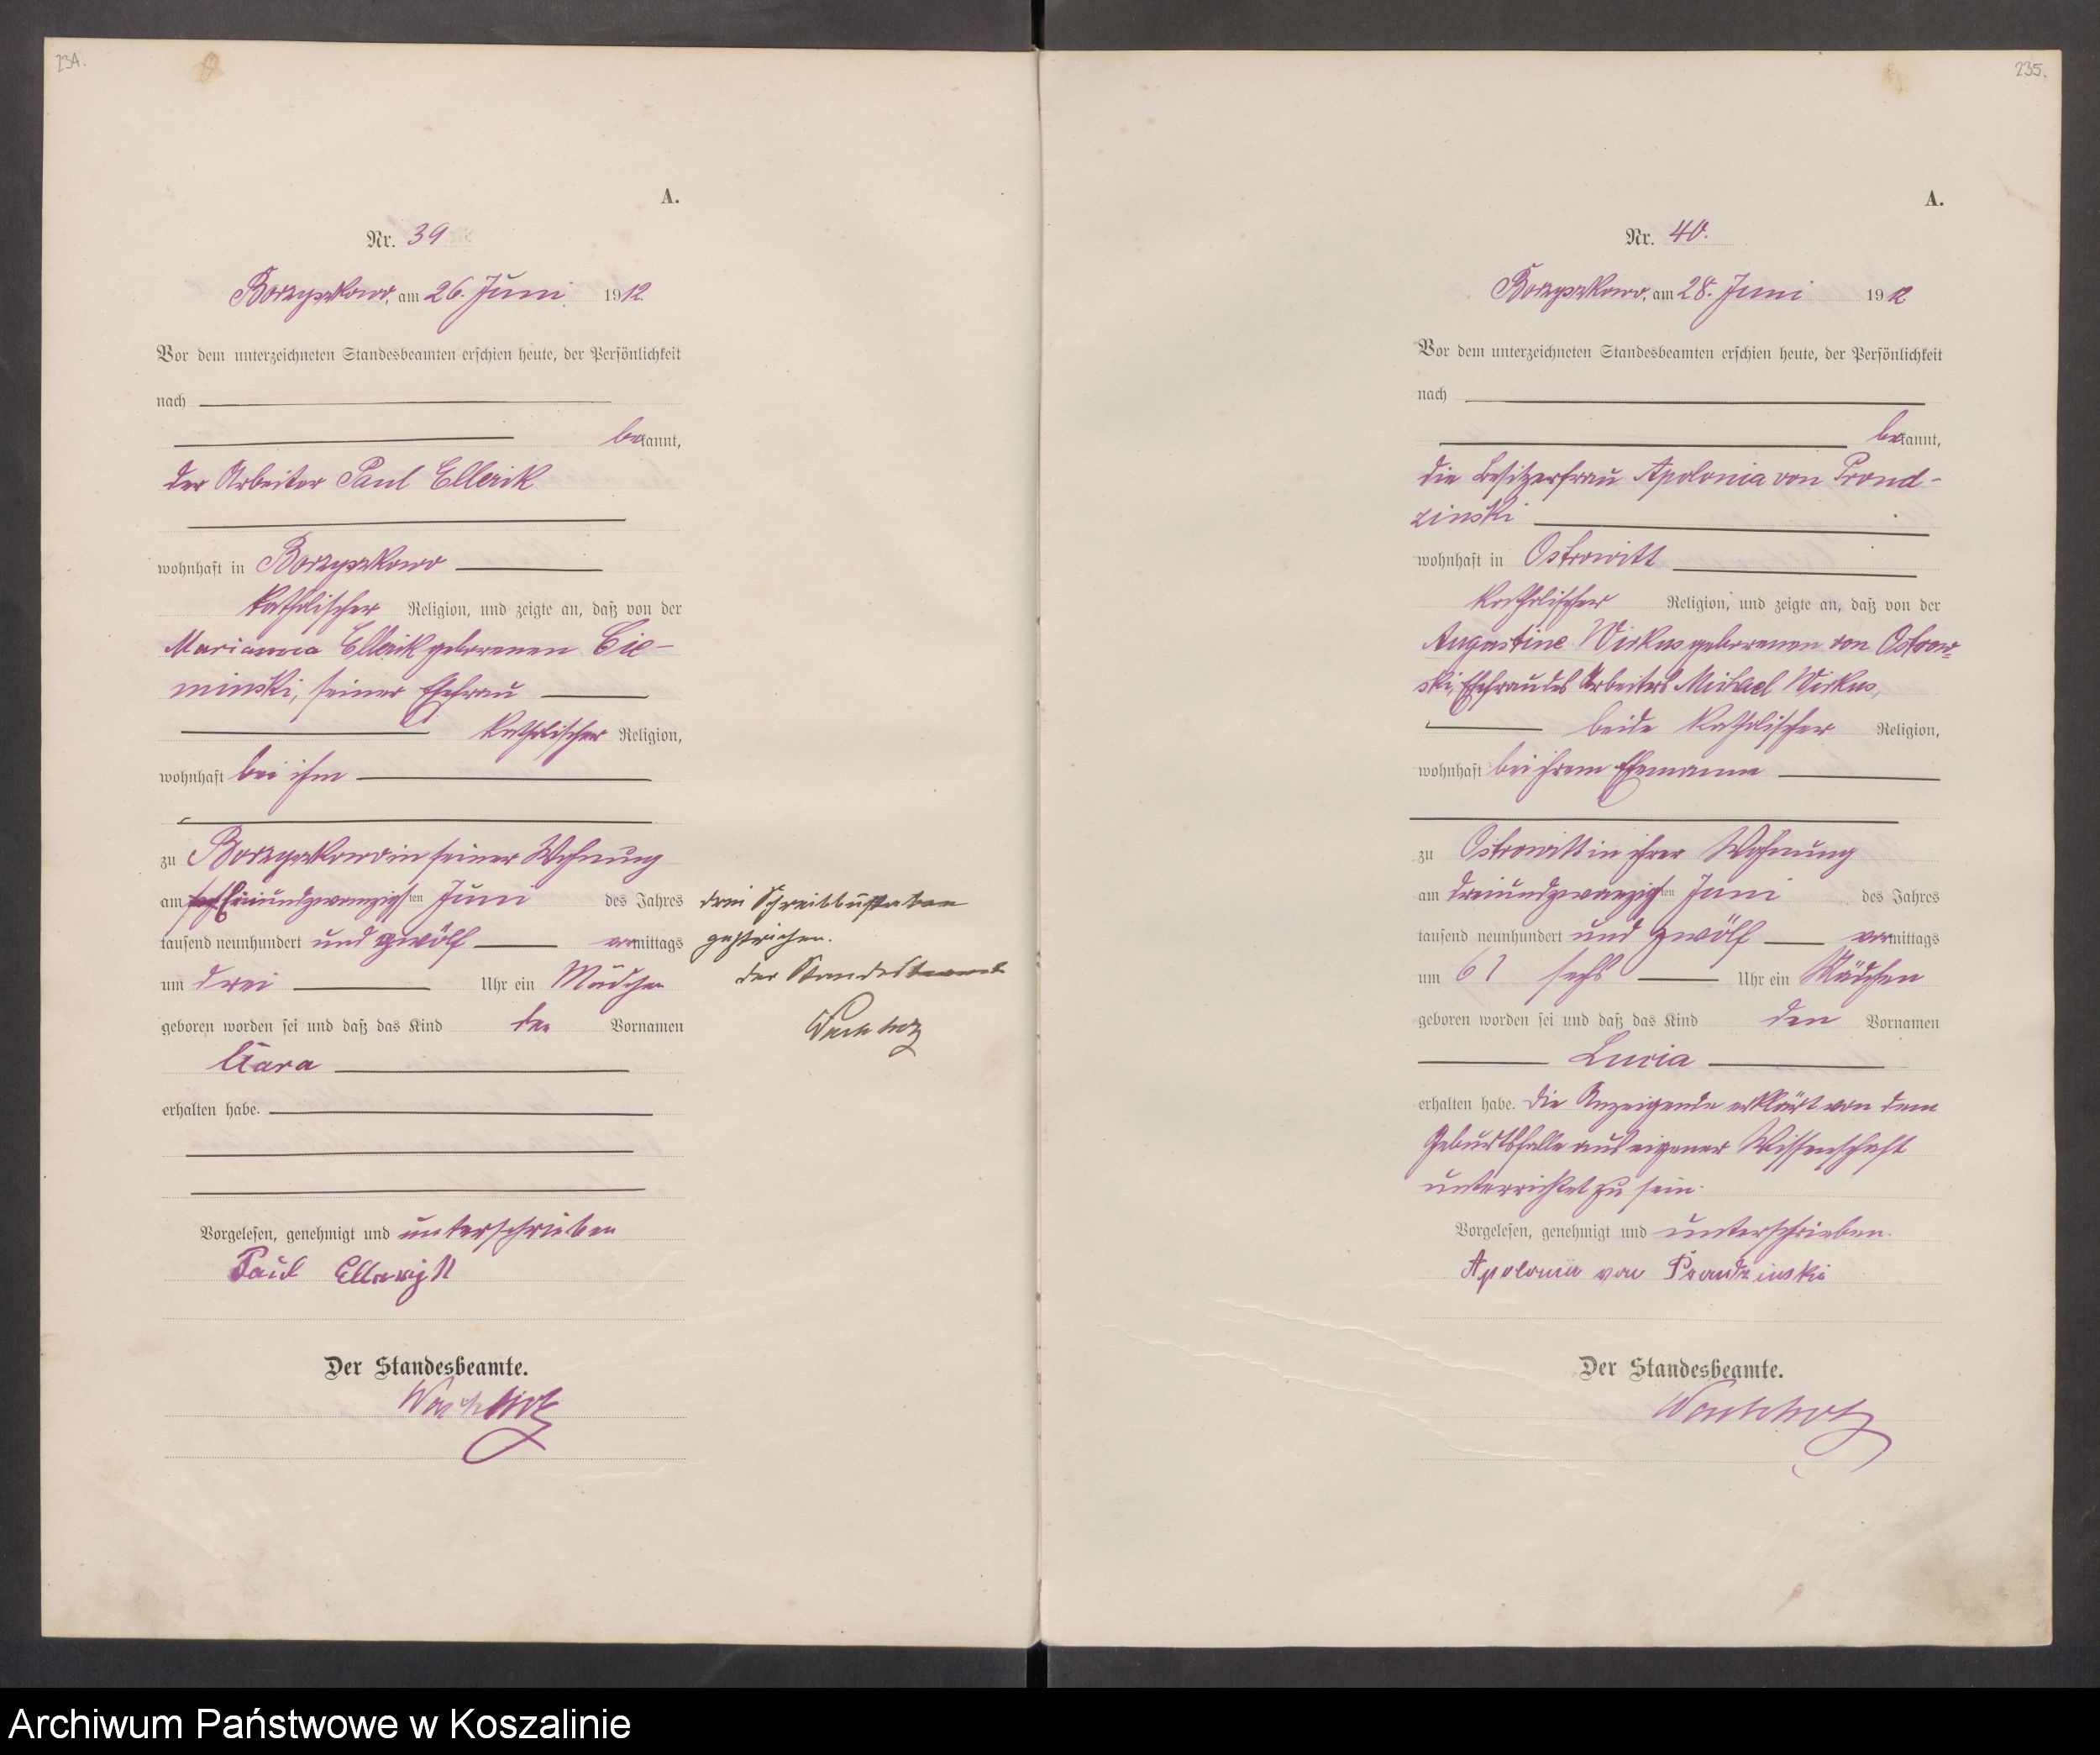 234.
A.
Nr. 39
Borzyszkowo, am 26. Juni 1912.
Vor dem unterzeichneten Standesbeamten erschien heute, der Persönlichkeit
nach
bekannt,
der Arbeiter Paul Ellerik
wohnhaft in Borzyszkowo
katholischer Religion, und zeigte an, daß von der
Marianna Ellerik geborenen Cie-
minski, seiner Ehefrau
katholischer Religion,
wohnhaft bei ihm
zu Borzyszkowo in seiner Wohnung
am einundzwanzigsten Juni des Jahres
tausend neunhundert und zwölf vormittags
um drei Uhr ein Mädchen
geboren worden sei und daß das Kind den Vornamen
Clara
erhalten habe.
Vorgelesen, genehmigt und unterschrieben
Paul
Der Standesbeamte.
drei Schreibbuchstaben
gestrichen.
der Standesbeamte
235.
A.
Nr. 40.
Borzyszkowo, am 28. Juni 1912
Vor dem unterzeichneten Standesbeamten erschien heute, der Persönlichkeit
nach
bekannt,
die Besitzerfrau Apolonia von Prond-
zinski
wohnhaft in Ostrowitt
katholischer Religion, und zeigte an, daß von der
Augustine Wirkus geborenen von Ostrow-
ski, Ehefrau des Arbeiters Michael Wirkus,
beide katholischer Religion,
wohnhaft bei ihrem Ehemanne
zu Ostrowitt in ihrer Wohnung
am dreiundzwanzigsten Juni des Jahres
tausend neunhundert und zwölf vormittags
um sechs Uhr ein Mädchen
geboren worden sei und daß das Kind den Vornamen
Lucia
erhalten habe. Die Anzeigende erklärt von dem
Geburtsfalle aus eigener Wissenschaft
unterrichtet zu sein.
Vorgelesen, genehmigt und unterschrieben.
Apolonia von Prondzinski
Der Standesbeamte.
Archiwum Państwowe w Koszalinie